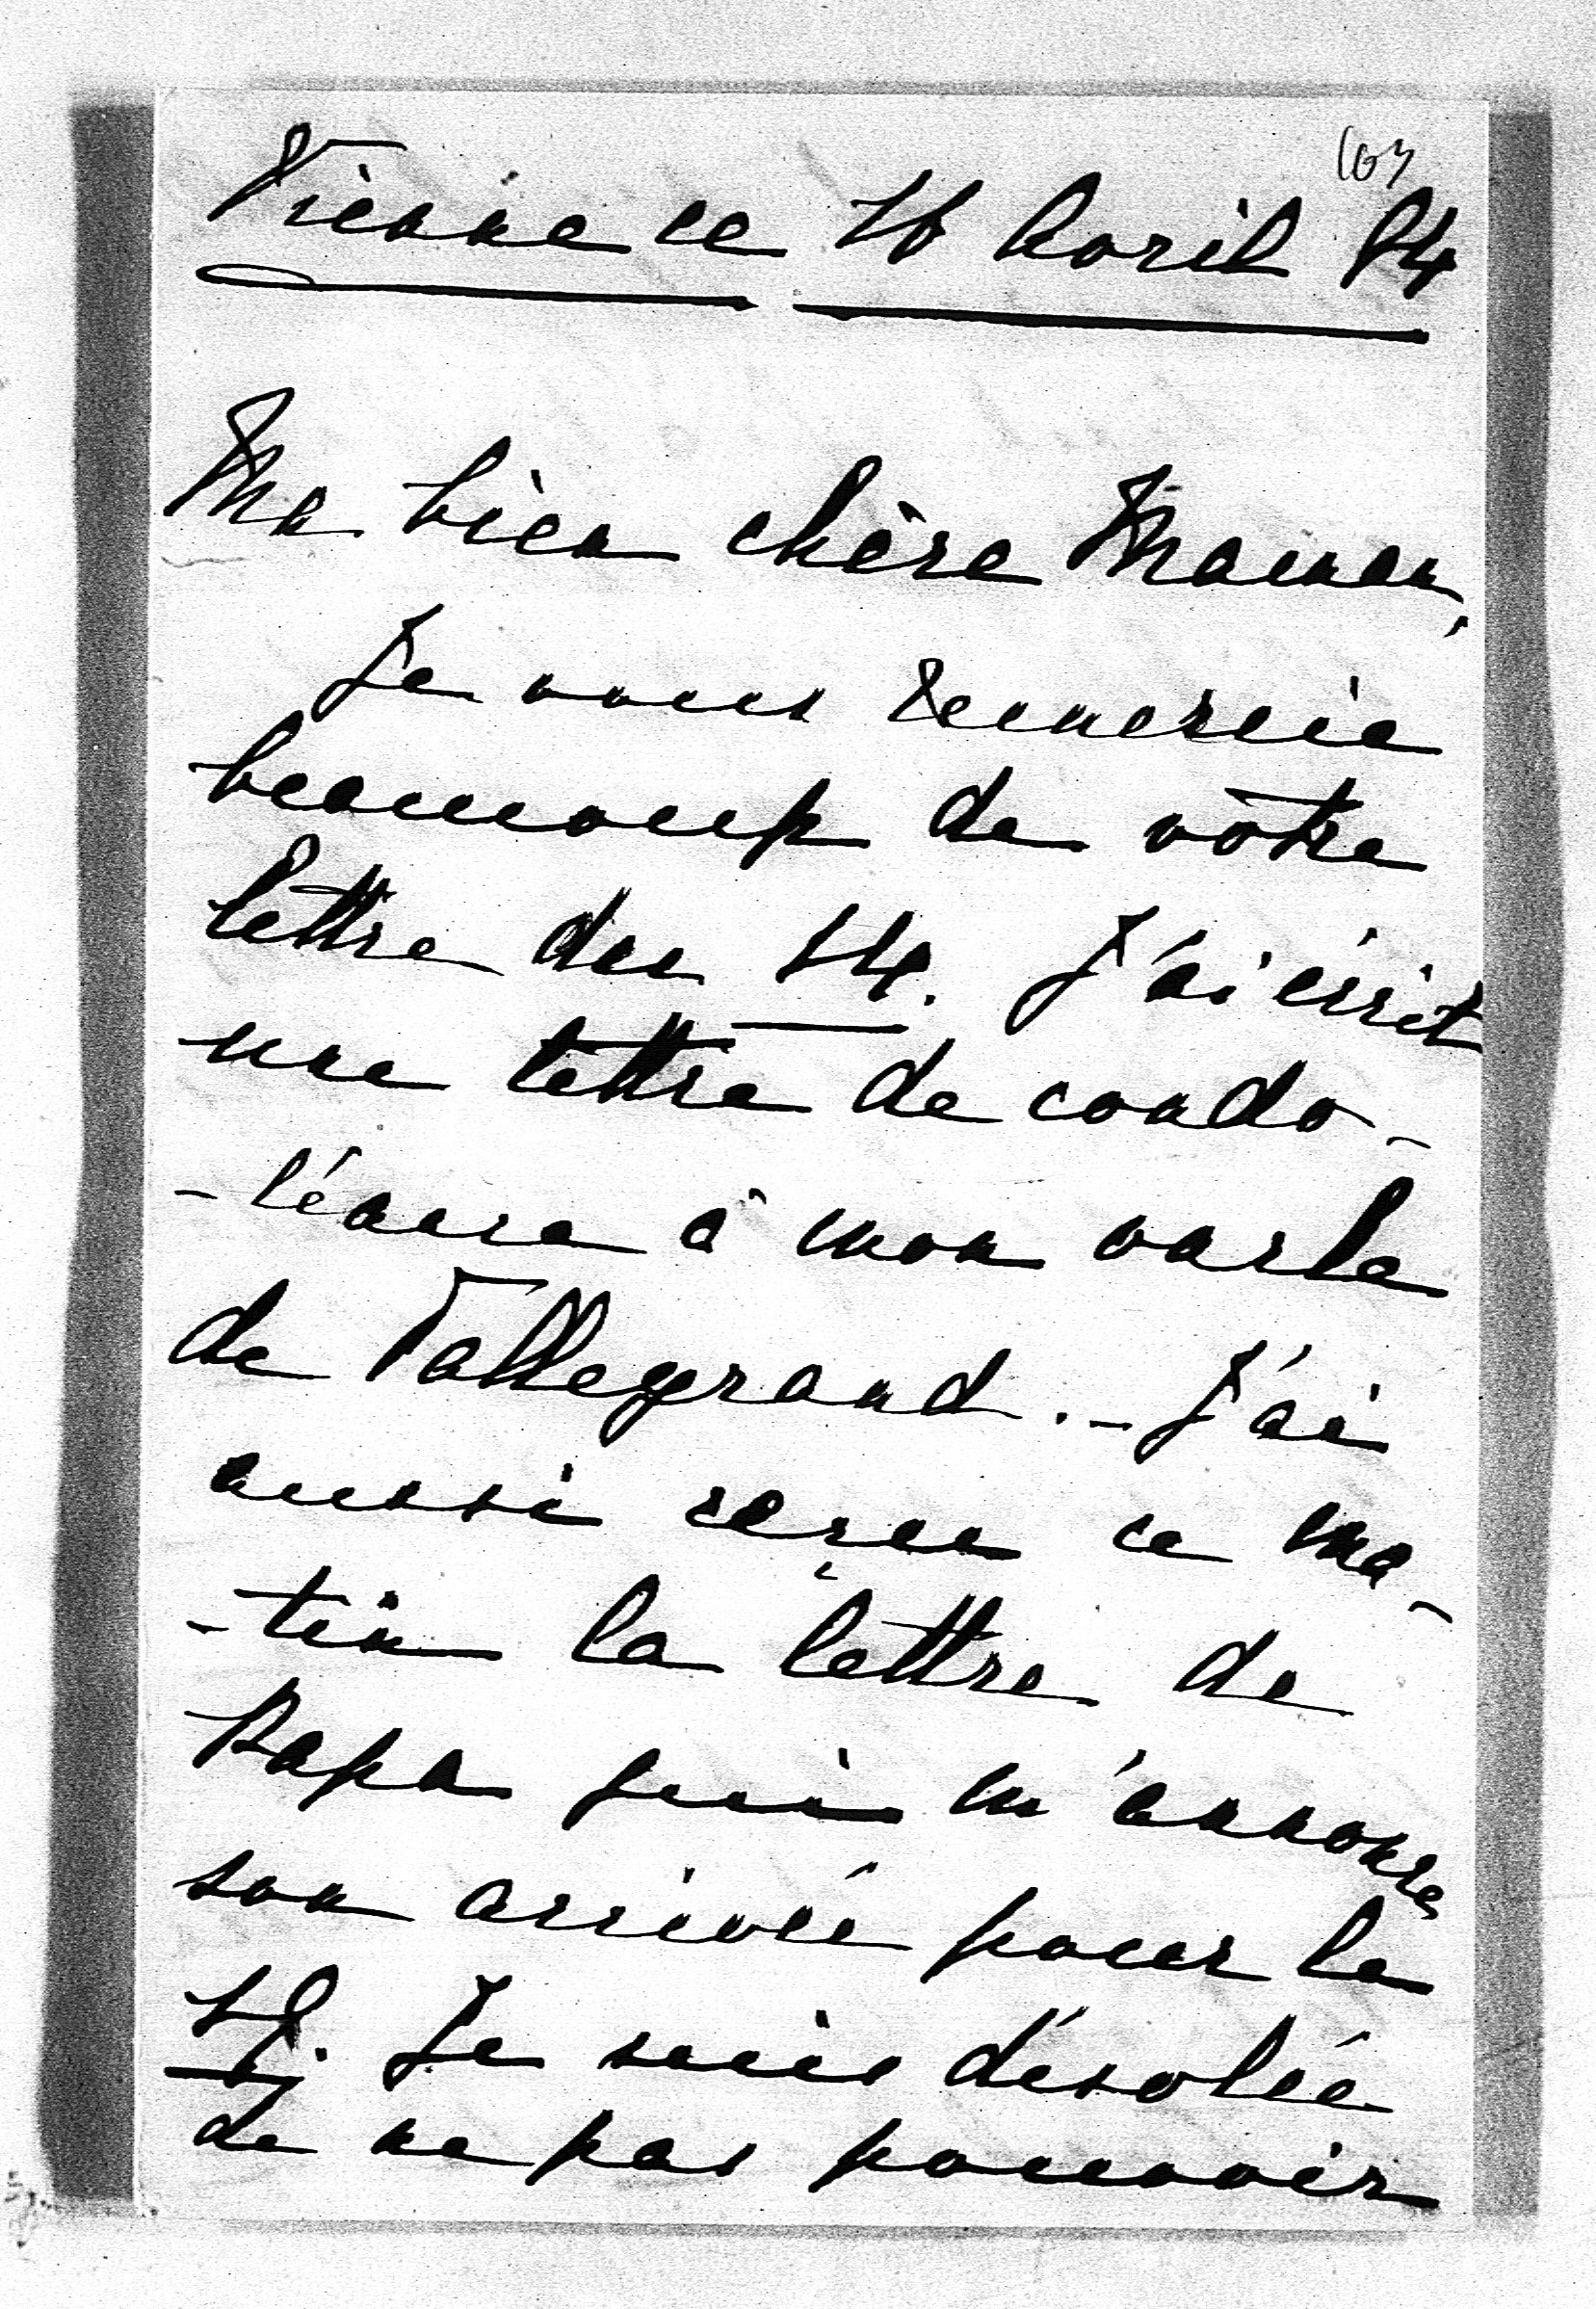 103
Vienne ce 16 Avril 84
Ma bien chère Maman,
Je vous remercie
beaucoup de vôtre
lettre du 14. J'ai écrit
une lettre de condo-
-léance à mon oncle
de Talleyrand. - J'ai
aussi reçu ce ma-
-tin la lettre de
Papa qui m'annonce
son arrivée pour le
Je suis désolée
de ne pas pouvoir